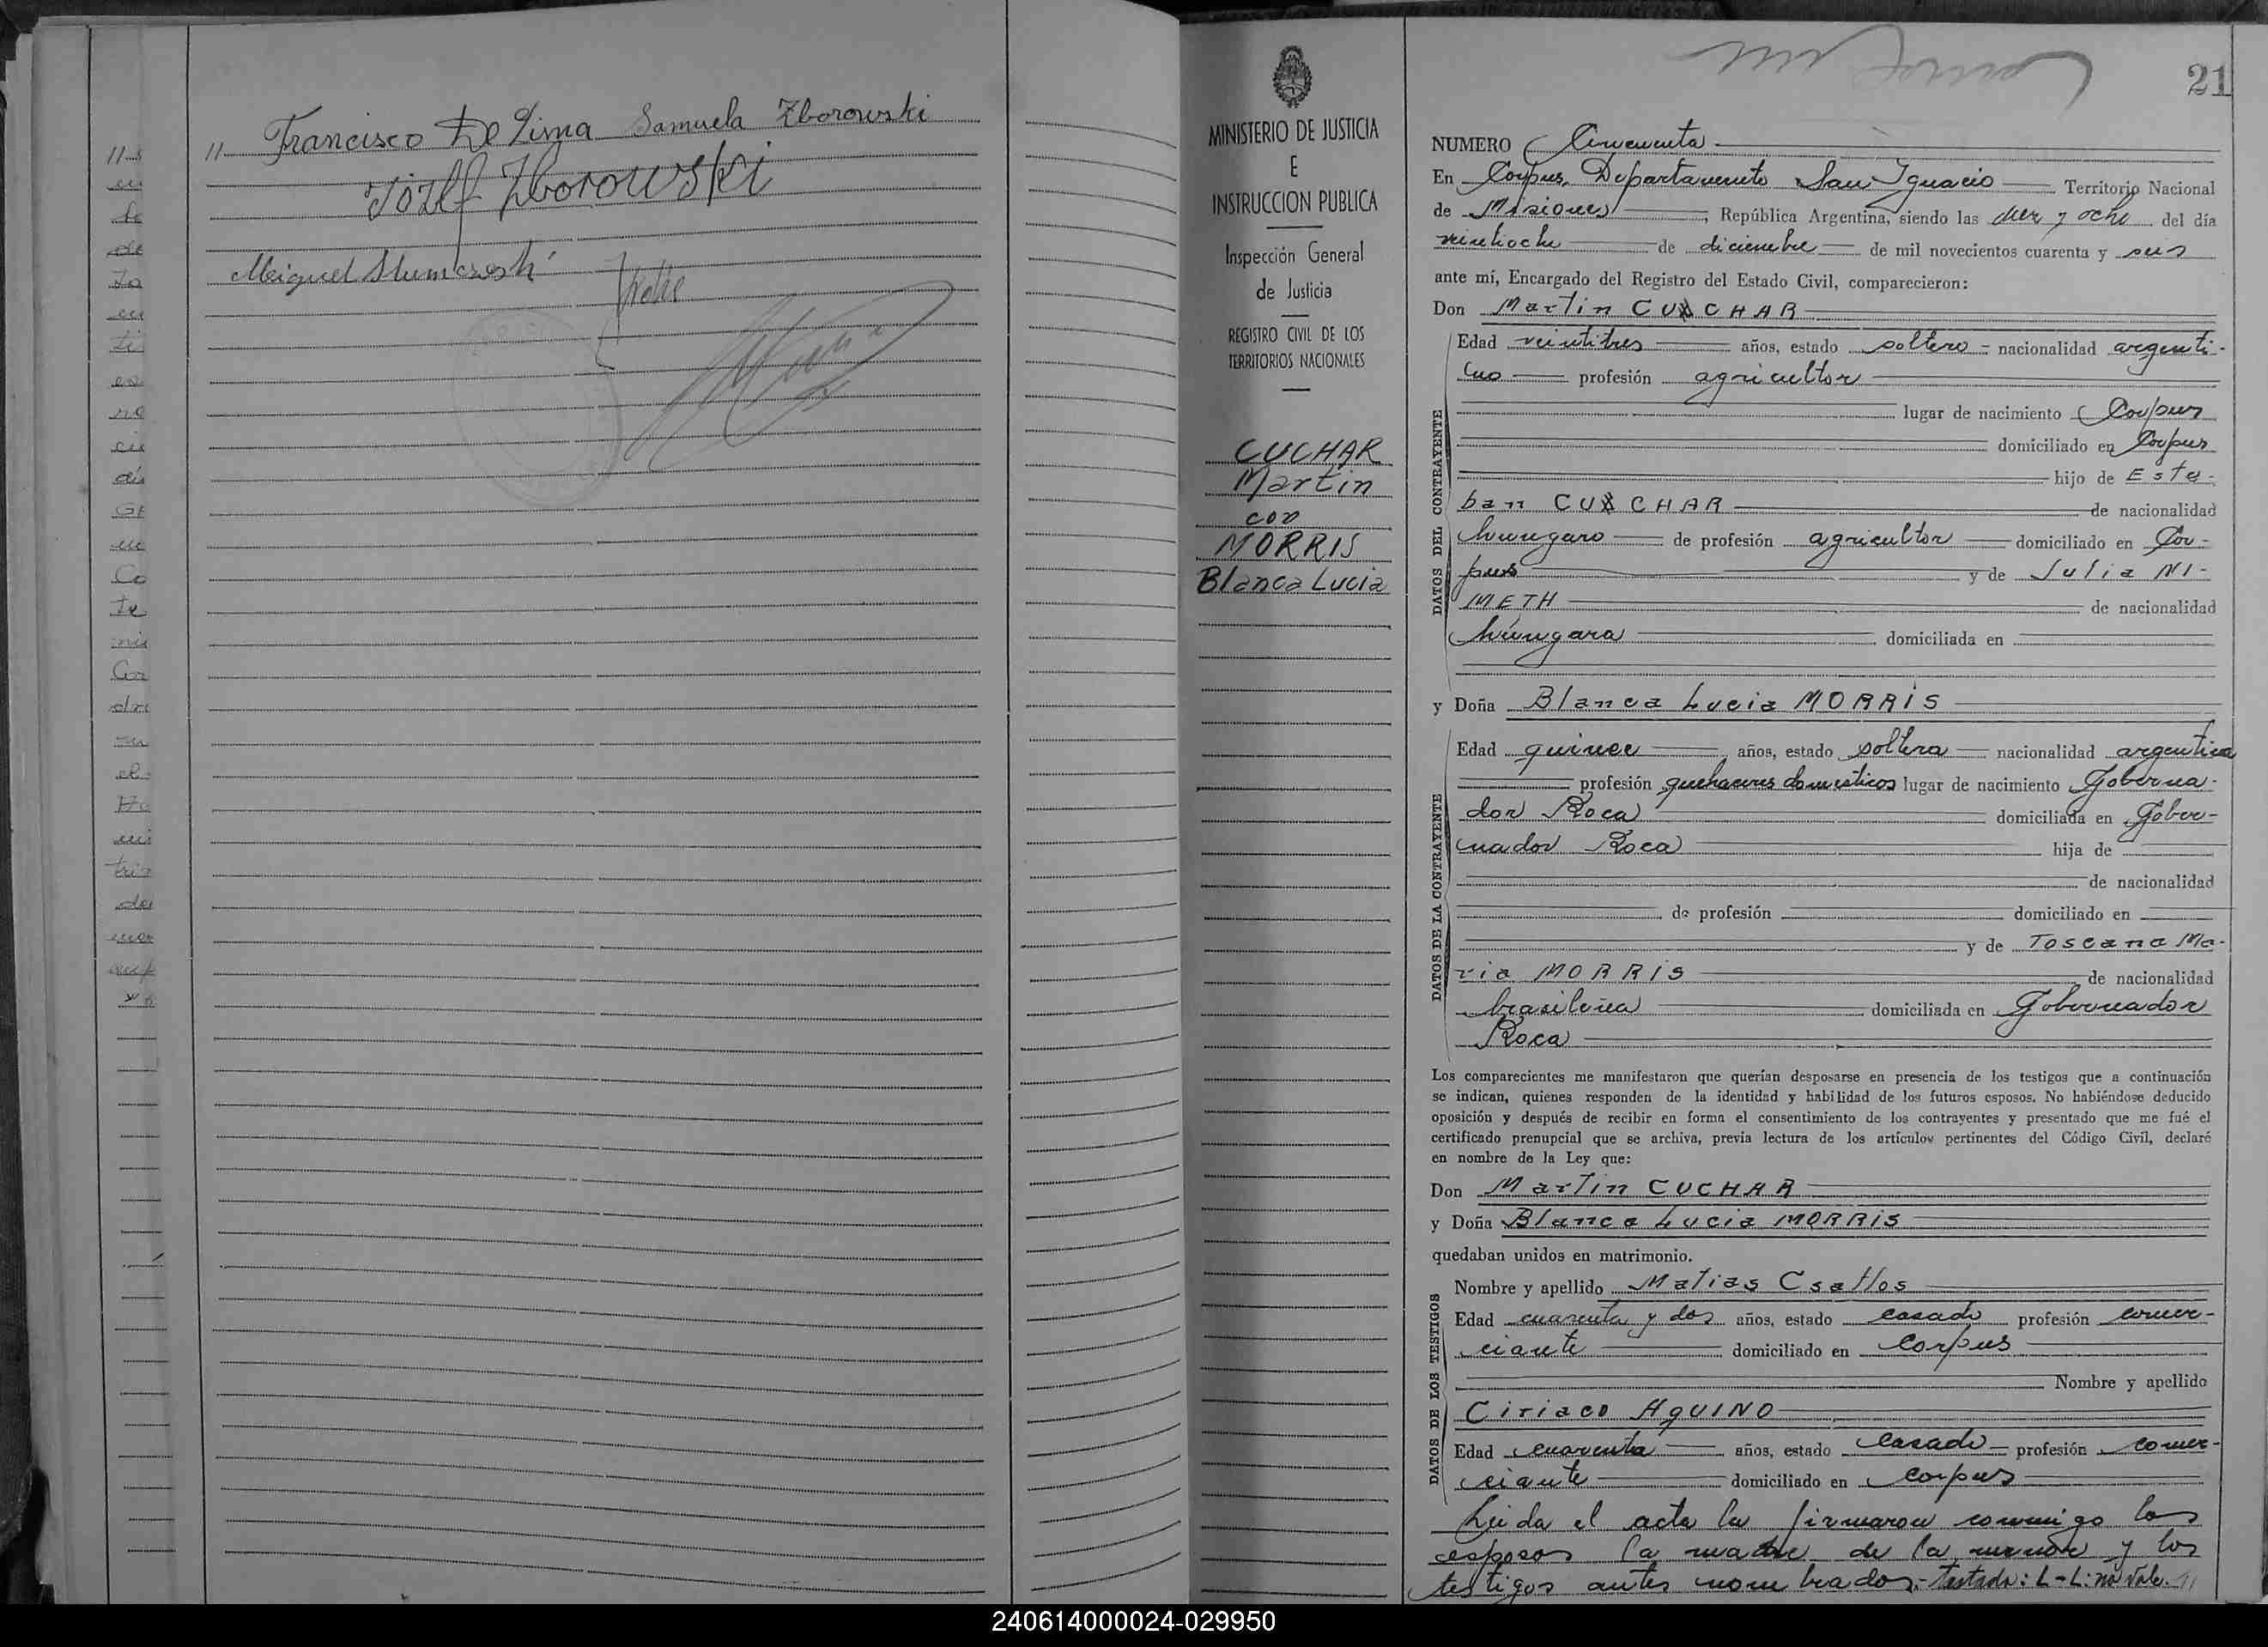 11 Francisco De Lima Samuela Zborowski
Józef Zborowski
Miguel
MINISTERIO DE JUSTICIA
E
INSTRUCCION PUBLICA
Inspección General
de Justicia
REGISTRO CIVIL DE LOS
TERRITORIOS NACIONALES
CUCHAR
Martin
con
MORRIS
Blanca Lucia
21
NUMERO Cincuenta
En Corpus, Departamento San Ignacio Territorio Nacional
de Misiones, República Argentina, siendo las diez y ocho del día
veintiocho de diciembre de mil novecientos cuarenta y seis
ante mí, Encargado del Registro del Estado Civil, comparecieron:
Don Martin CU CHAR
Edad veintitres años, estado soltero - nacionalidad argenti-
no profesión agricultor
lugar de nacimiento Corpus
domiciliado en Corpus
DATOS DEL CONTRAYENTE
hijo de Este-
ban CU CHAR de nacionalidad
húngaro de profesión agricultor domiciliado en Cor-
pus y de Julia NI-
METH de nacionalidad
húngara domiciliada en
y Doña Blanca Lucia MORRIS
Edad quince años, estado soltera nacionalidad argentina
profesión quehaceres domesticos lugar de nacimiento Goberna-
dor Roca domiciliada en Gober-
nador Roca hija de
DATOS DE LA CONTRAYENTE
de nacionalidad
de profesión domiciliado en
y de Toscana Ma-
ria MORRIS de nacionalidad
brasileña domiciliada en Gobernador
Roca
Los comparecientes me manifestaron que querían desposarse en presencia de los testigos que a continuación
se indican, quienes responden de la identidad y habilidad de los futuros esposos. No habiéndose deducido
oposición y después de recibir en forma el consentimiento de los contrayentes y presentado que me fué el
certificado prenupcial que se archiva, previa lectura de los artículos pertinentes del Código Civil, declaré
en nombre de la Ley que:
Don Martin CUCHAR
y Doña Blanca Lucia MORRIS
quedaban unidos en matrimonio.
DATOS DE LOS TESTIGOS
Nombre y apellido Matias Csatlos
Edad cuarenta y dos años, estado casado profesión comer-
ciante domiciliado en Corpus
Nombre y apellido
Ciriaco AQUINO
Edad cuarenta años, estado casado profesión comer-
ciante domiciliado en Corpus
Leida el acta la firmaron conmigo los
esposos la madre de la menor y los
testigos antes nombrados.- Testado: L-L: no vale. 11
240614000024-029950